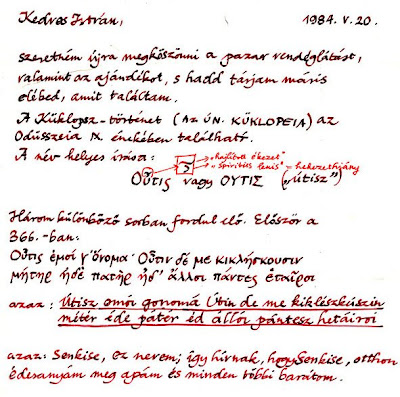 Kedves István, 1984. V. 20.
szeretném újra megköszönni a pazar vendéglátást,
valamint az ajándékot, s hadd tárjam máris
elébed, amit találtam.
A Küklopsz-történet (AZ ÚN. KÜKLOPEIA) az
Odüsszeia IX. énekében található.
A név helyes írása: „hajlított ékezet”
„spiritus lenis” = hehezethiány
Οὖτις vagy ΟΥΤΙΣ („útisz”)
Három különböző sorban fordul elő. Először a
366.-ban:
Οὖτις ἐμοί γ' ὄνομα· Οὖτιν δέ με κικλήσκουσιν
μήτηρ ἠδὲ πατὴρ ἠδ' ἄλλοι πάντες ἑταῖροι
azaz: Útisz emoi gonoma Útin de me kiklészkúszin
métér éde patér éd álloi pántesz hetáiroi
azaz: Senkise, ez nevem; így hívnak, hogy Senkise, otthon
édesanyám meg apám és minden többi barátom.